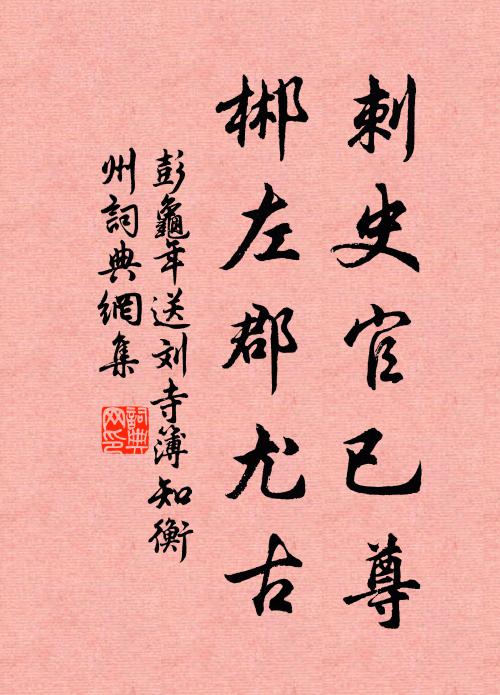 刺史官已尊
郴左郡尤古
彭龜年送刘寺簿知衡
州詞典網集
詞典网印